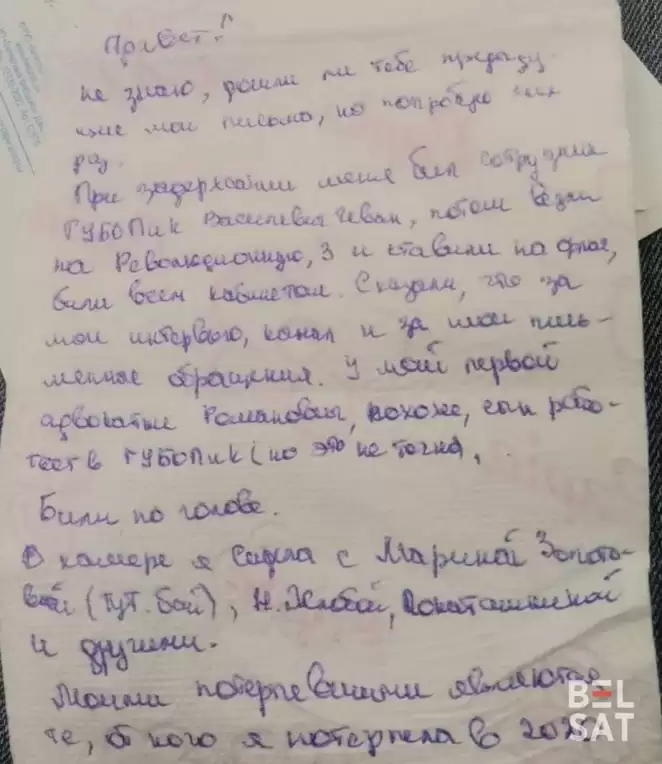 Привет!
не знаю, дошли ли тебе предыду
щие мои письма, но попробую еще
раз.
При задержании меня бил сотрудник
ГУБОПиК Василевич Иван, потом везли
на Революционную, 3 и ставили на флаг,
били всем кабинетом. Сказали, что за
мои интервью, канал и за мои пись-
менные обращения. У моей первой
адвокатши Романович, похоже, сын рабо-
тает в ГУБОПиК (но это не точно).
Били по голове.
В камере я сидела с Мариной Золото-
вой (тут.бай), Н. Хлобой,
и другими.
Моими потерпевшими являются
те, от кого я потерпела в
BEL
SAT